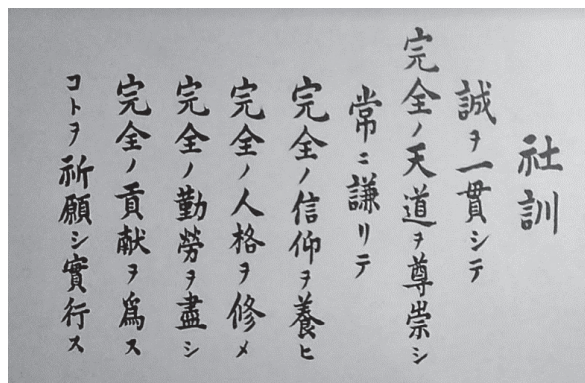 社訓
誠ヲ一貫シテ
完全ノ天道ヲ尊崇シ
常ニ謙リテ
完全ノ信仰ヲ養ヒ
完全ノ人格ヲ修メ
完全ノ勤勞ヲ盡シ
完全ノ貢献ヲ爲ス
コトヲ祈願シ實行ス